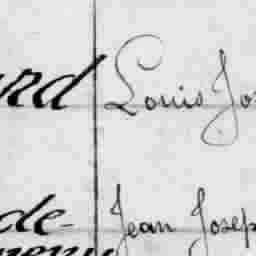 rd Louis Jos
de- Jean Josep